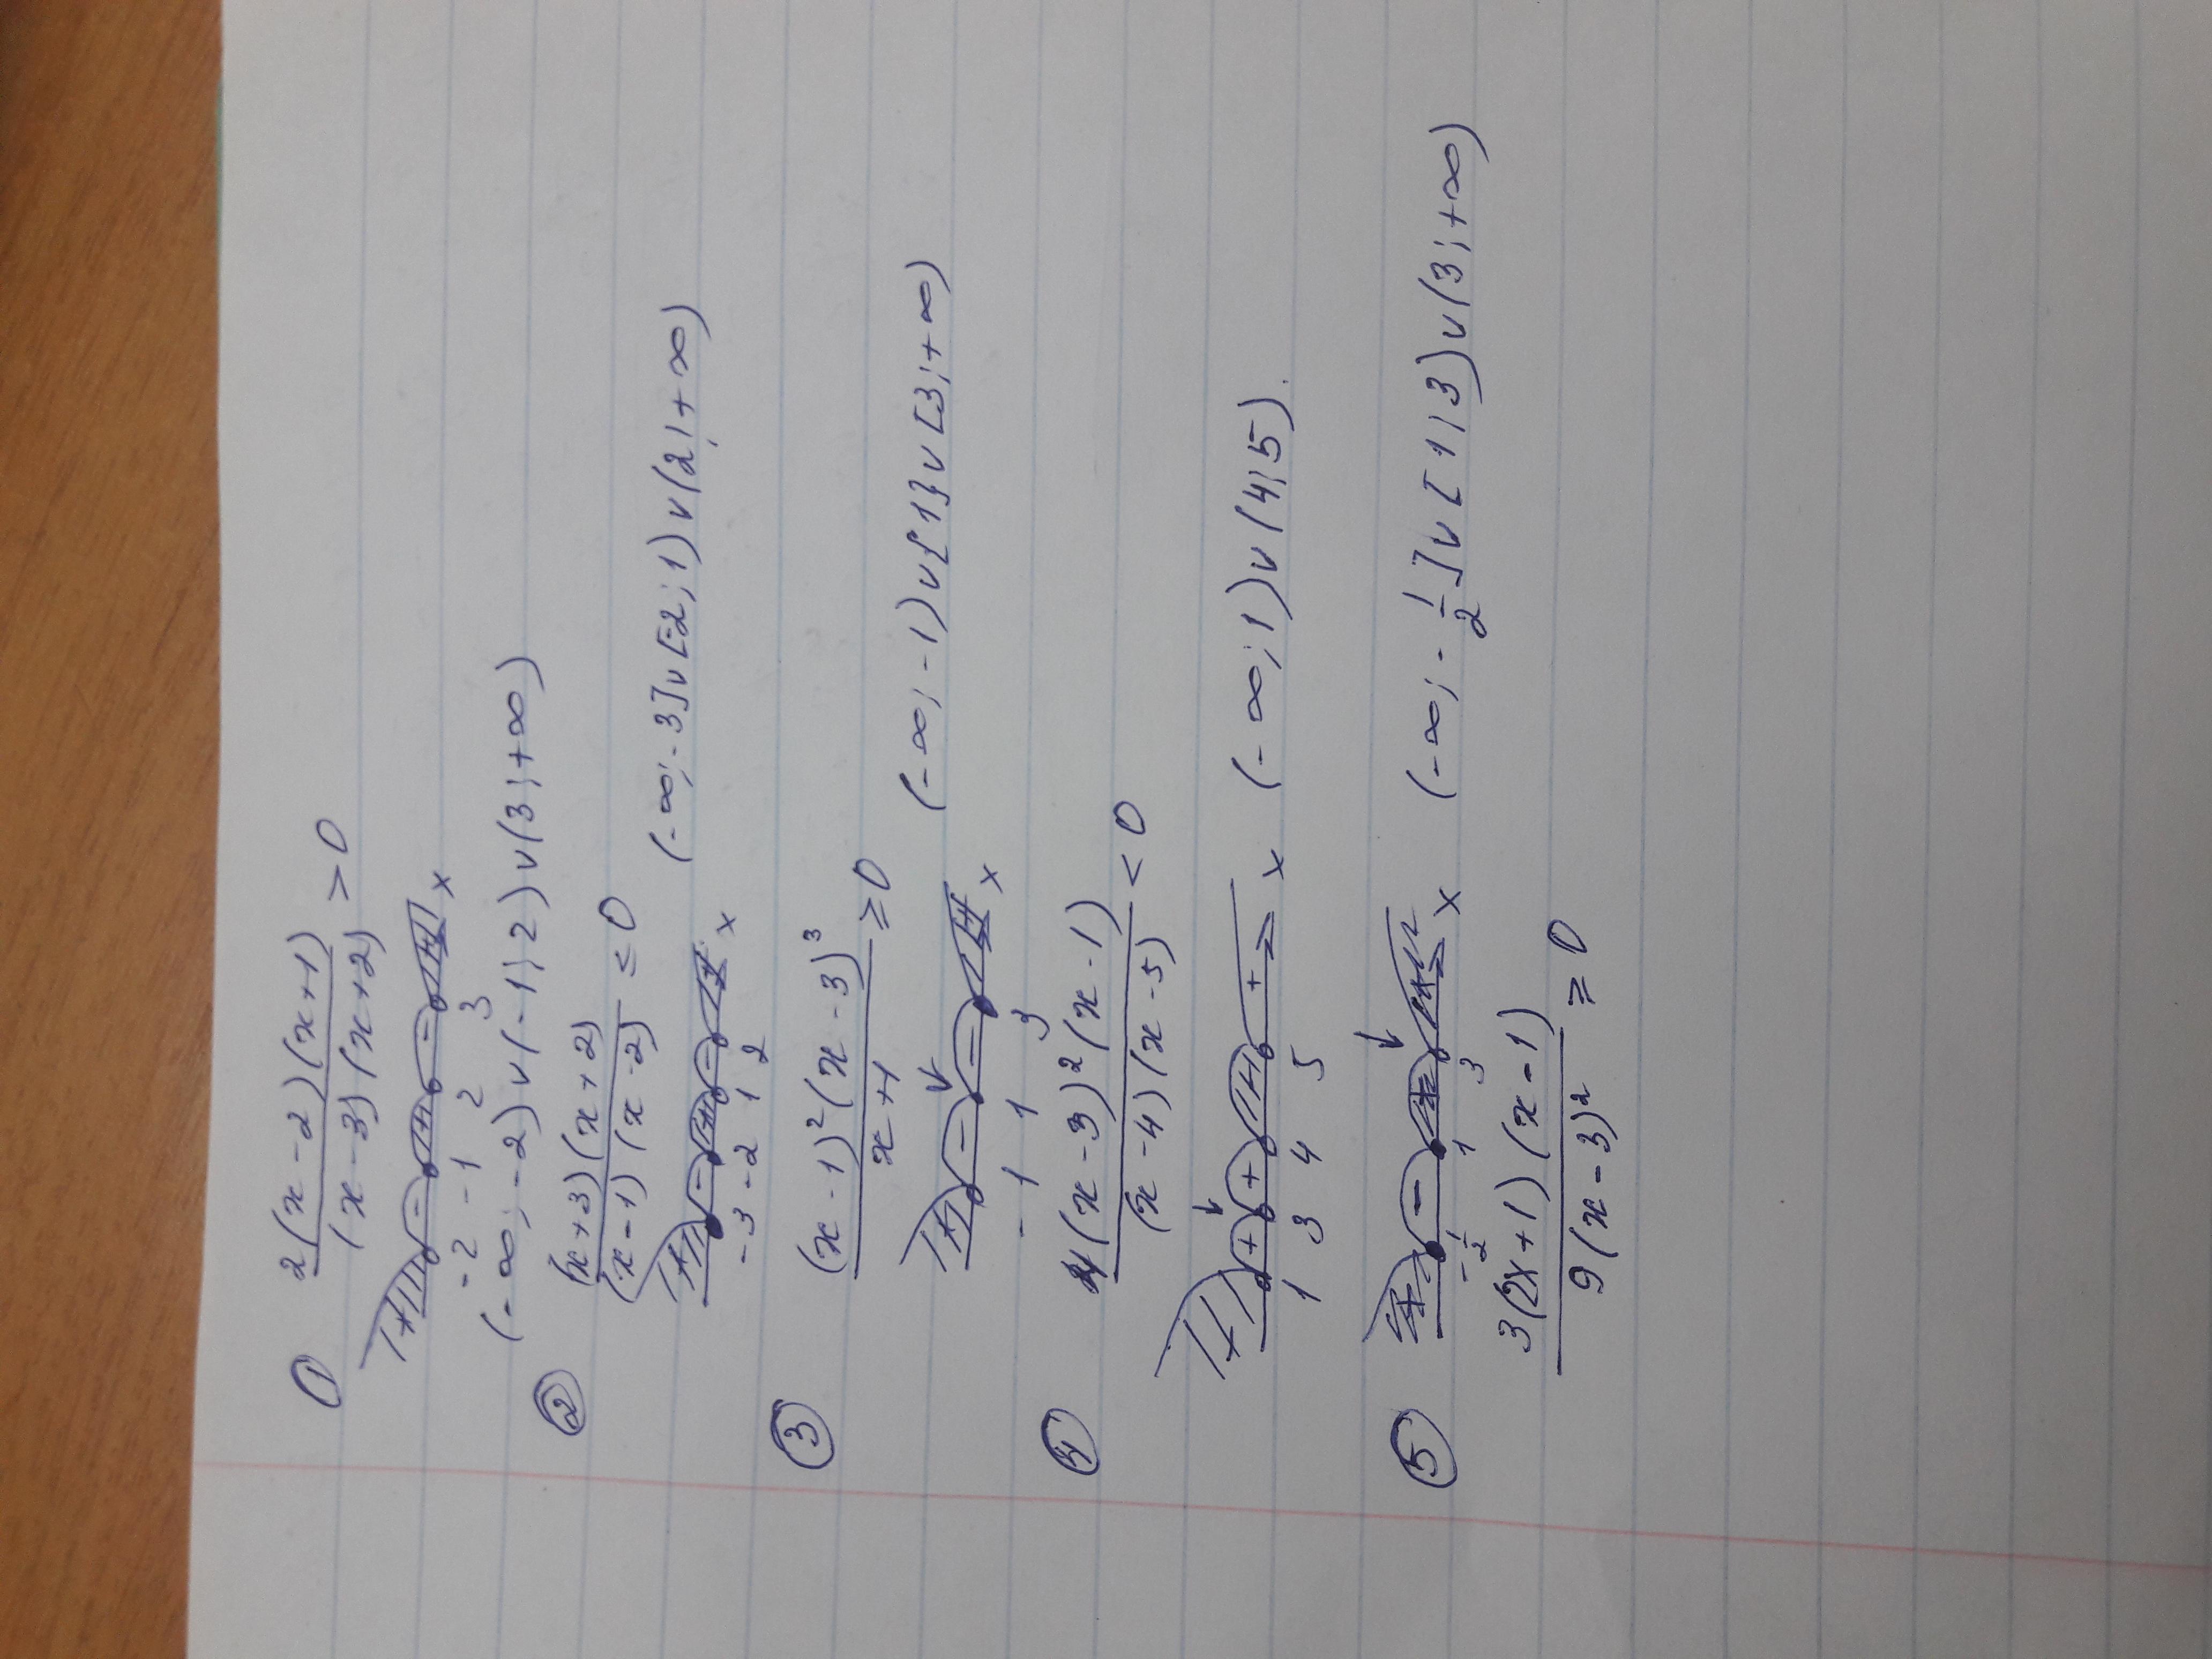 ① 2(x-2)(x+1)/(x-3)(x+2) > 0
+ - + - + x
-2 -1 2 3
(-∞; -2)∪(-1; 2)∪(3; +∞)
② (x+3)(x+2)/(x-1)(x-2) ≤ 0
+ - + - + x
-3 -2 1 2
(-∞; -3]∪[-2; 1)∪(2; +∞)
③ (x-1)²(x-3)³/x+1 ≥ 0
+ - - + x
-1 1 3
(-∞; -1)∪{1}∪[3; +∞)
④ (x-3)²(x-1)/(x-4)(x-5) < 0
+ + + + x
1 3 4 5
(-∞; 1)∪(4; 5).
⑤ + - + + x
-1/2 1 3
(-∞; -1/2]∪[1; 3)∪(3; +∞)
3(2x+1)(x-1)/9(x-3)² ≥ 0